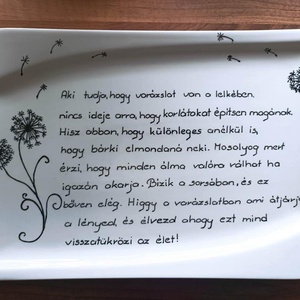 Aki tudja, hogy varázslat van a lelkében,
nincs ideje arra, hogy korlátokat építsen magának.
Hisz abban, hogy különleges anélkül is,
hogy bárki elmondaná neki. Mosolyog mert
érzi, hogy minden álma valóra válhat ha
igazán akarja. Bízik a sorsában, és ez
bőven elég. Higgy a varázslatban ami átjárja
a lényed, és élvezd ahogy ezt mind
visszatükrözi az élet!